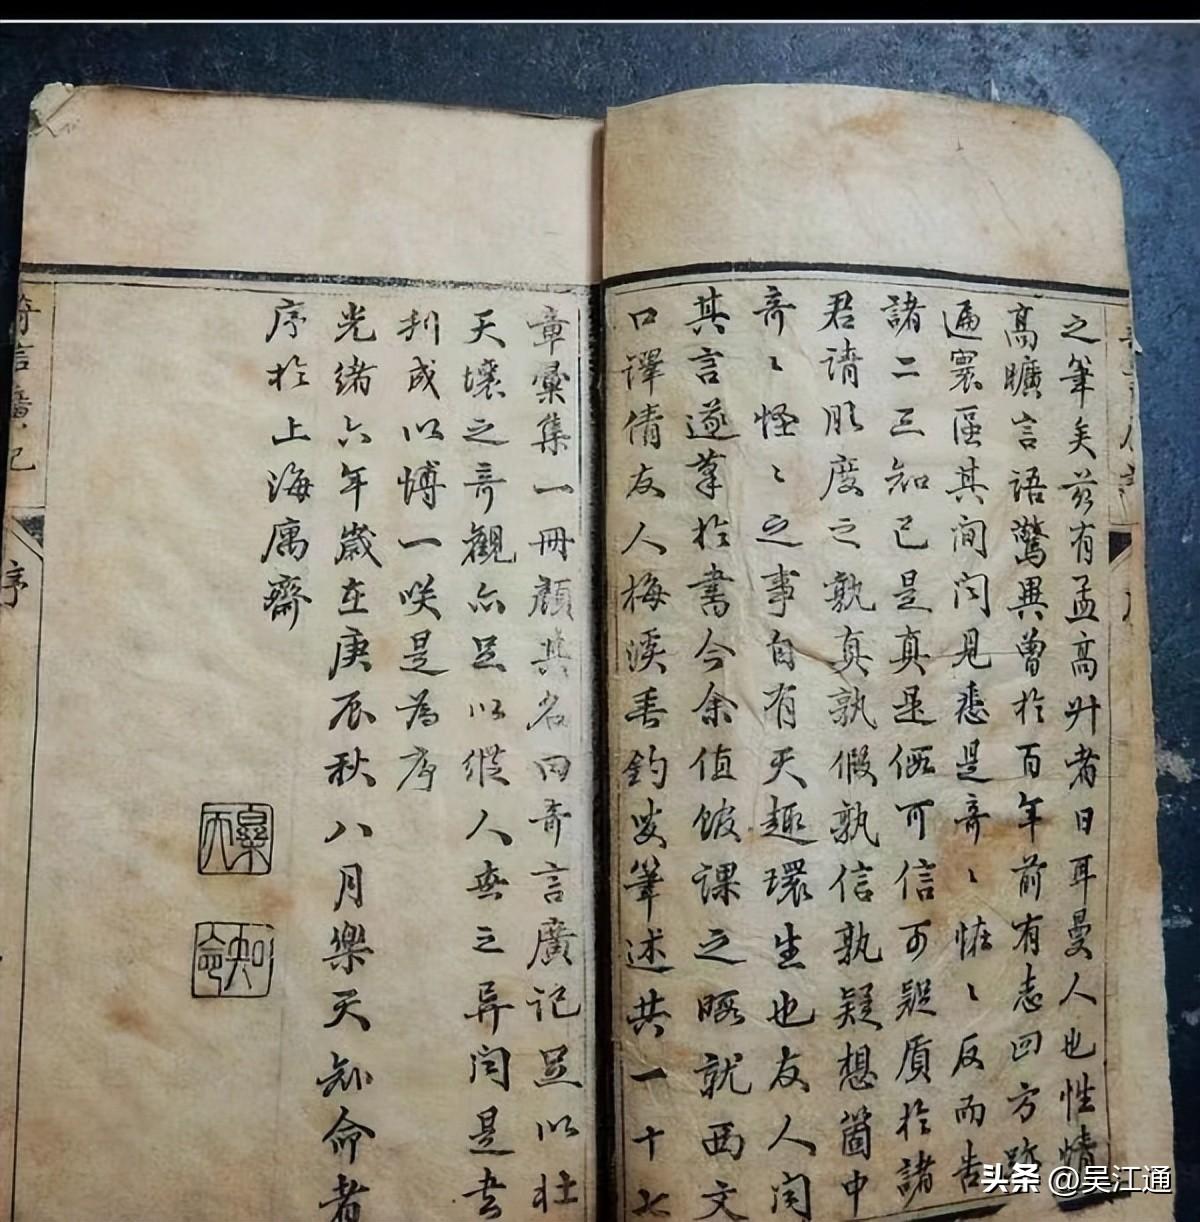 之筆矣茲有孟高升者日耳曼人也性情
高曠言語驚異曾於百年前有志四方跡
遍寰區其间闻見悉是奇〻怪〻反而告
諸二三知己是真是假可信可疑質於諸
君请肊度之孰真孰假孰信孰疑想箇中
奇〻怪〻之事自有天趣環生也友人闻
其言遂筆於書今余值館課之暇就西文
口譯倩友人梅溪垂釣叟筆述共一十七
章彙集一冊顏其名曰奇言廣记足以壮
天壤之奇觀亦足以縱人世之异闻是書
刊成以博一咲是為序
光緒六年歲在庚辰秋八月樂天知命者
序於上海寓齋
樂天
知命
奇言廣记
序
头条@吴江通